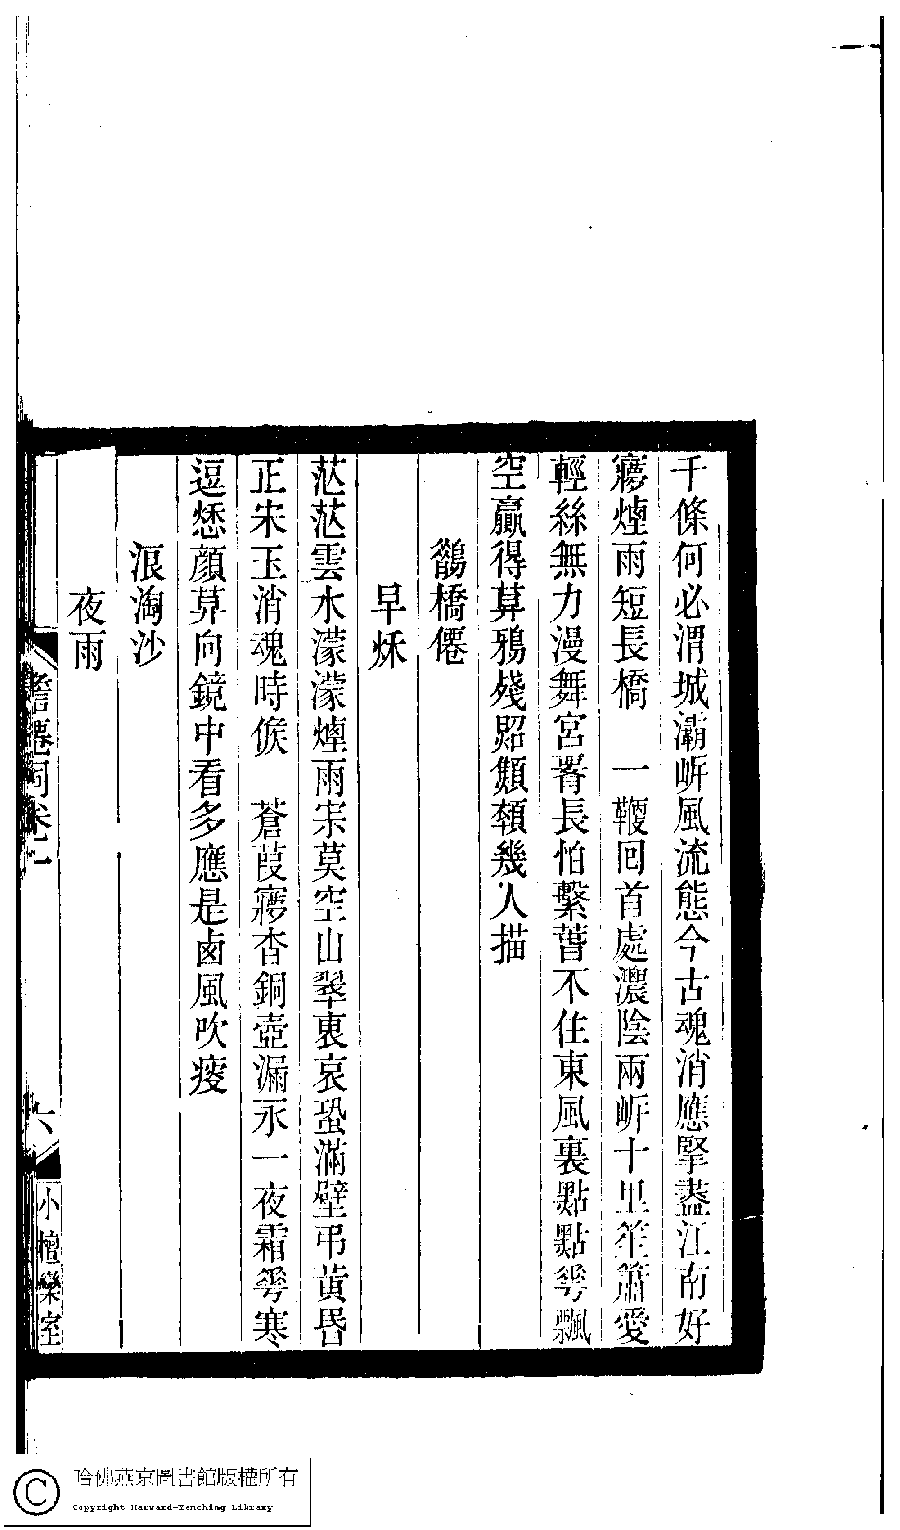 千條何必渭城灞岍風流態今古魂消應擥盡江南好
寱煙雨短長橋　一鞭回首處濃陰兩岍十里笙簫愛
輕絲無力漫舞宮署長怕繫萻不住東風裏點點雩飄
空贏得算鴉殘照顦顇幾人描
鵲橋僊
早秌
茫茫雲水濛濛煙雨宗莫空山翠裏哀蛩滿壁弔黃昏
正宋玉消魂時候　蒼葭寱杳銅壺漏永一夜霜雩寒
逗愁顏算向鏡中看多應是卤風吹瘦
浪淘沙
夜雨
僊詞卷
六
小檀欒室
哈佛燕京圖書館版權所有
Copyright Harvard-Yenching Library